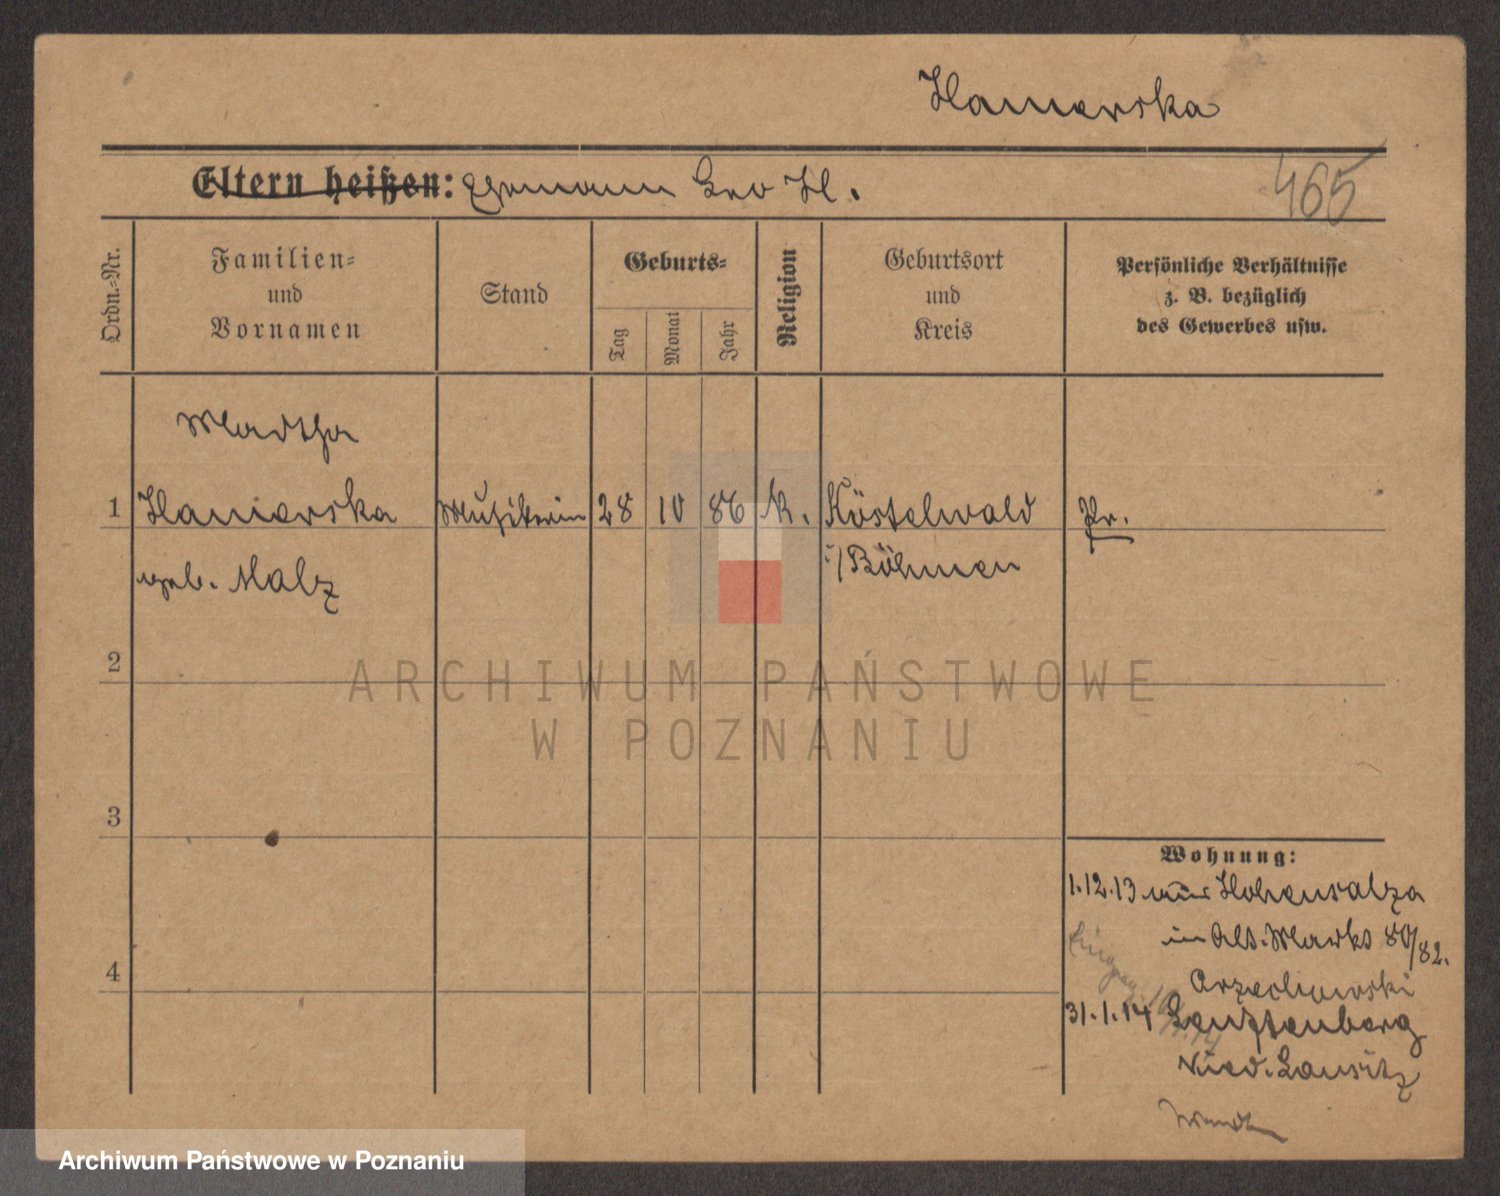 Haniewska
Eltern heißen: Ehemann Leo H.
465
Ordn.-Nr.
Familien-
und
Vornamen
Stand
Geburts-
Tag
Monat
Jahr
Religion
Geburtsort
und
Kreis
Persönliche Verhältnisse
z. B. bezüglich
des Gewerbes usw.
Martha
1 Haniewska Musikerin 28 10 86 k. Köstelwald Pr.
geb. Malz i/Böhmen
2
3
4
Wohnung:
1.12.13 aus Hohensalza
in Alt. Markt 80/82.
31.1.14 Senftenberg
Nied. Lausitz
ARCHIWUM PAŃSTWOWE
W POZNANIU
Archiwum Państwowe w Poznaniu